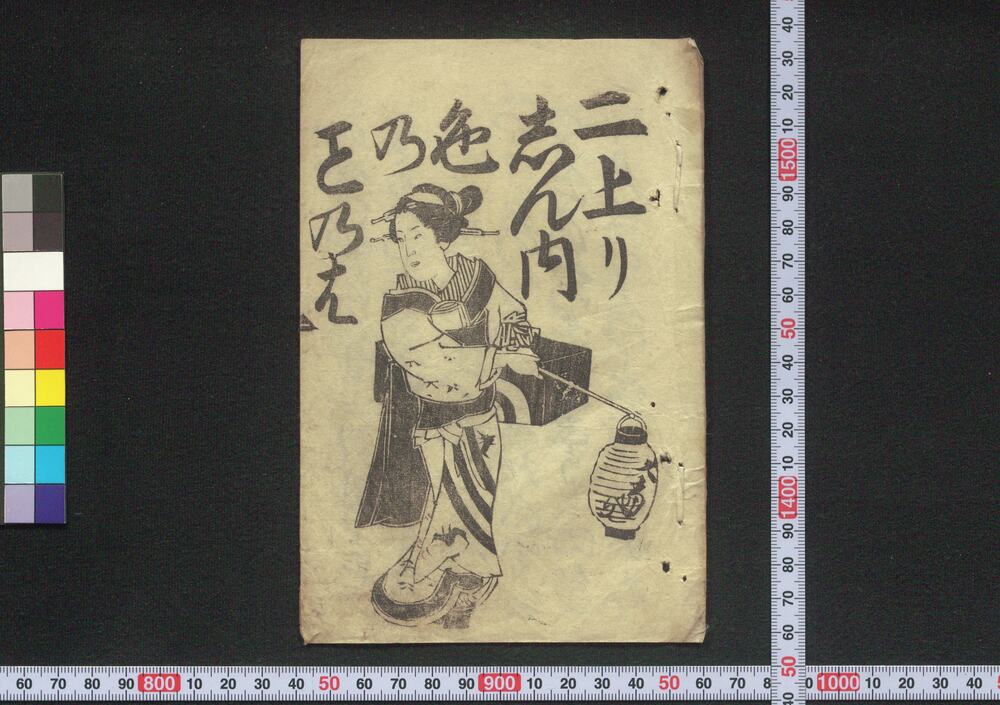 二上り
志ん内
色
乃
こと乃は
40 30 20 10 1500 90 80 70 60 50 40 30 20 10 1400 90 80 70 60 50 40
60 70 80 90 800 10 20 30 40 50 60 70 80 90 900 10 20 30 40 50 60 70 1000 10 20 30 40